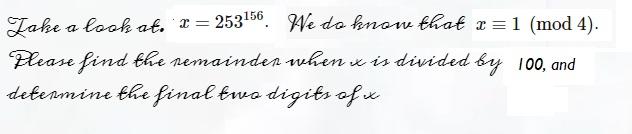 Take a look at. x = 253^156. We do know that x ≡ 1 (mod 4).
Please find the remainder when x is divided by 100, and
determine the final two digits of x